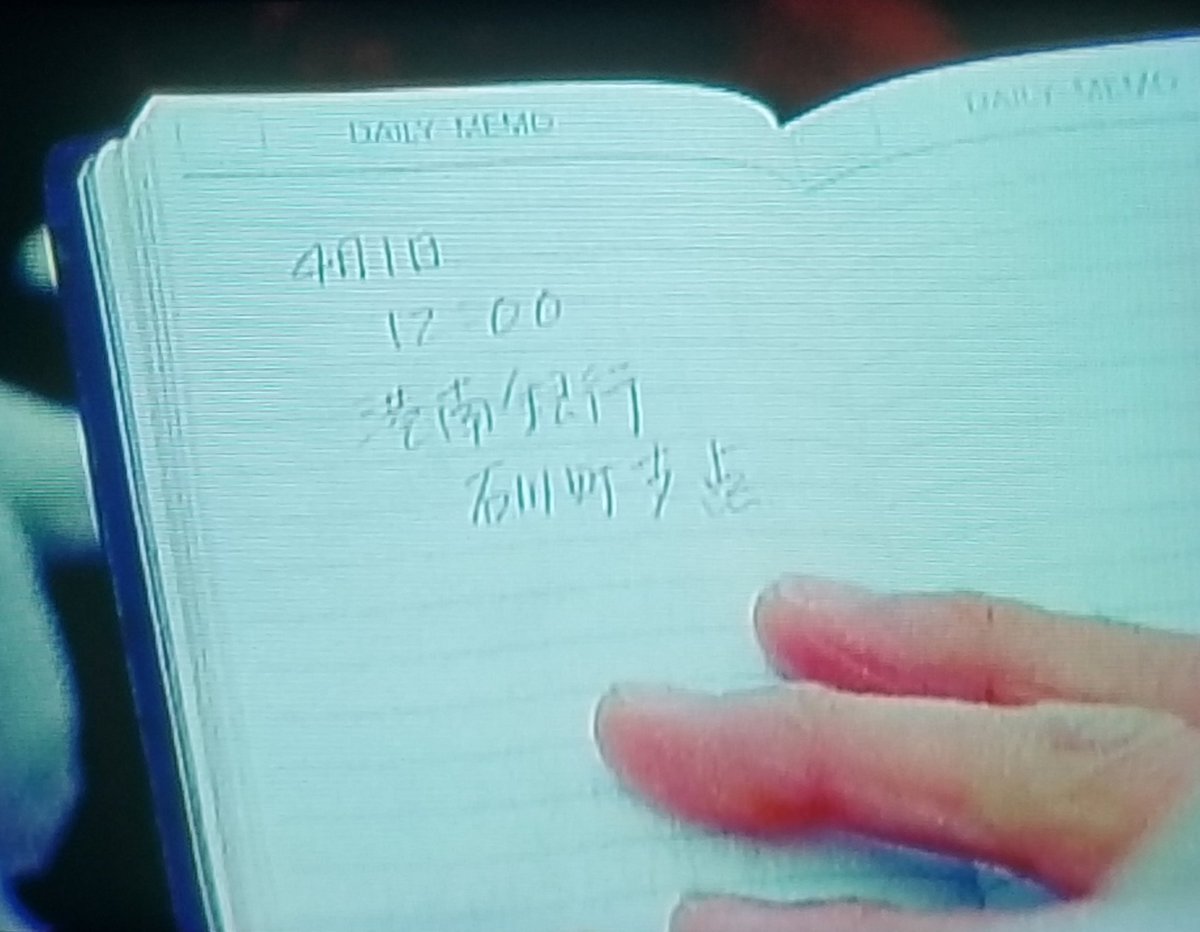 DAILY MEMO
DAILY MEMO
4月1日
17:00
港南銀行
石川町支店